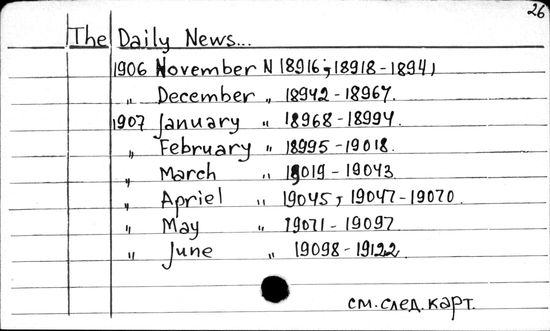 26
The Daily News...
1906 November N 18916; 18918-18941
" December " 18942-18967.
1907 January " 18968-18994.
" February " 18995-19018.
" March " 19019-19043
" Apriel " 19045, 19047-19070
" May " 19071-19097
" June " 19098-19122
см. след. карт.